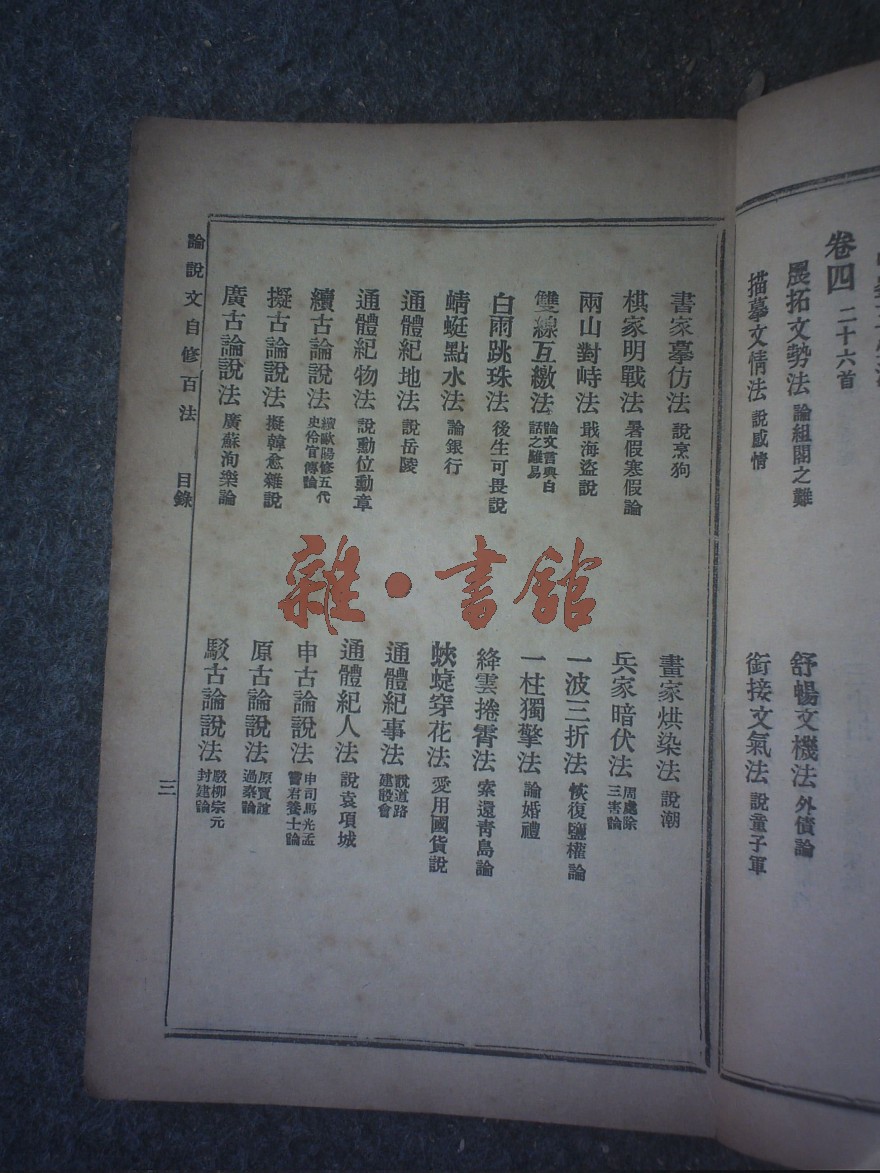 卷四 二十六首
展拓文勢法 論組閣之難
舒暢文機法 外債論
描摹文情法 說感情
銜接文氣法 說童子軍
書家摹仿法 說烹狗
畫家烘染法 說潮
棋家明戰法 暑假寒假論
兵家暗伏法 周處除三害論
兩山對峙法 戢海盜說
一波三折法 恢復鹽權論
雙線互繳法 論文言與白話之難易
一柱獨擎法 論婚禮
白雨跳珠法 後生可畏說
絳雲捲霄法 索還青島論
蜻蜓點水法 論銀行
蛺蜨穿花法 愛用國貨說
通體紀地法 說岳陵
通體紀事法 說道路建設會
通體紀物法 說勳位勳章
通體紀人法 說袁項城
續古論說法 續歐陽修五代史伶官傳論
申古論說法 申司馬光孟嘗君養士論
擬古論說法 擬韓愈雜說
原古論說法 原賈誼過秦論
廣古論說法 廣蘇洵樂論
駁古論說法 駁柳宗元封建論
論說文自修百法 目錄
三
雜·書館